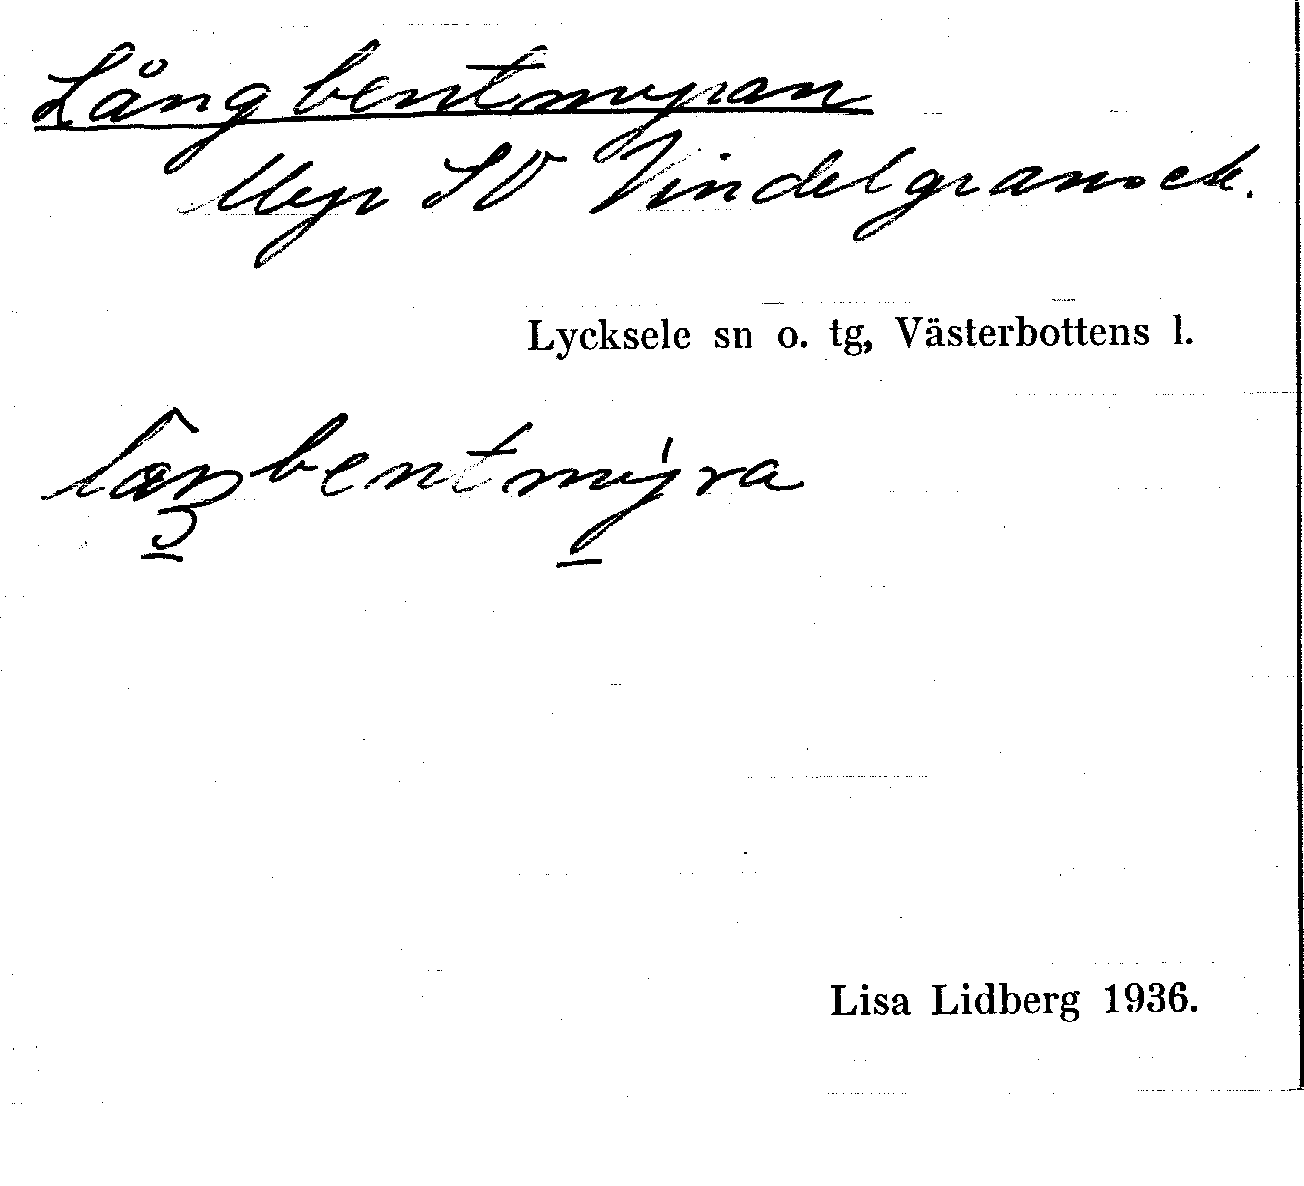 Långbentmyran
Myr SV Vindelgransele.
Lycksele sn o. tg, Västerbottens l.
Lisa Lidberg 1936.